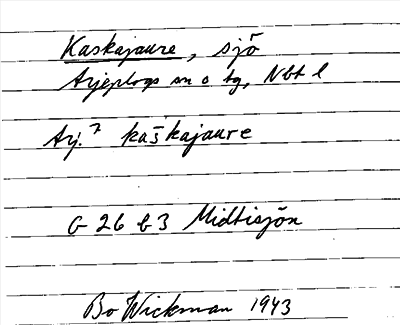 Kaskajaure, sjö
Arjeplogs sn o tg, Nbt l
Arj.² kaškajaure
G 26 b 3 Midtisjön
Bo Wickman 1943